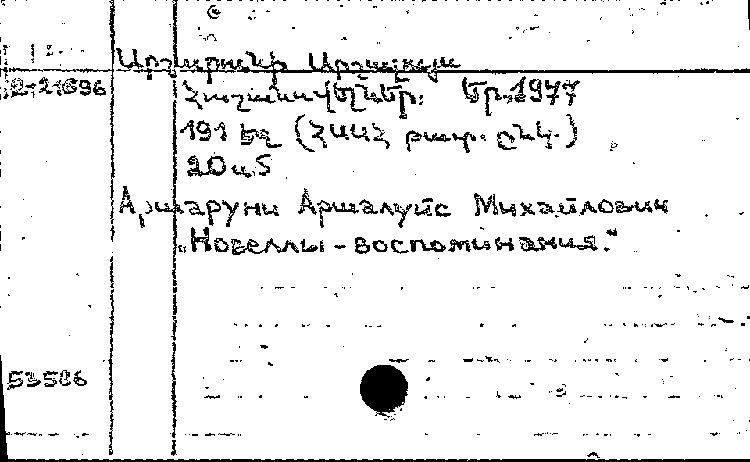 Արշարունի Արշալույս
2-21696 Հուշանովելներ: Եր.1977
191 էջ (ՀՍՍՀ թատր. ընկ.)
20սմ
Аршаруни Аршалуйс Михайлович
„Новеллы-воспоминания."
53586